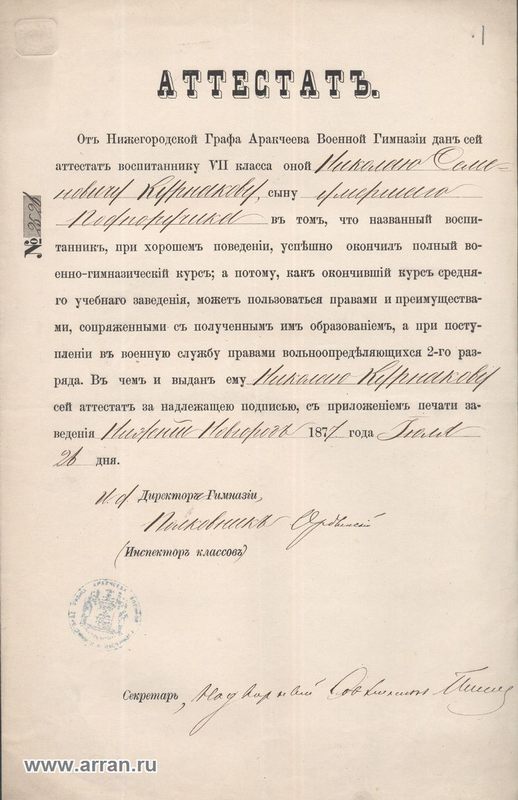 1
АТТЕСТАТЪ.
Отъ Нижегородской Графа Аракчеева Военной Гимназіи данъ сей
аттестатъ воспитаннику VII класса оной Николаю Семе-
новичу Курнакову, сыну умершаго
Подпоручика въ томъ, что названный воспи-
№
танникъ, при хорошемъ поведеніи, успѣшно окончилъ полный во-
енно-гимназическій курсъ; а потому, какъ окончившій курсъ средня-
го учебнаго заведенія, можетъ пользоваться правами и преимущества-
ми, сопряженными съ полученнымъ имъ образованіемъ, а при посту-
пленіи въ военную службу правами вольноопредѣляющихся 2-го раз-
ряда. Въ чемъ и выданъ ему Николаю Курнакову
сей аттестатъ за надлежащею подписью, съ приложеніемъ печати за-
веденія Нижній Новгородъ 1877 года Іюля
26 дня.
и. д. Директоръ Гимназіи
Полковникъ
(Инспекторъ классовъ)
Секретарь, Надворный Совѣтникъ
www.arran.ru